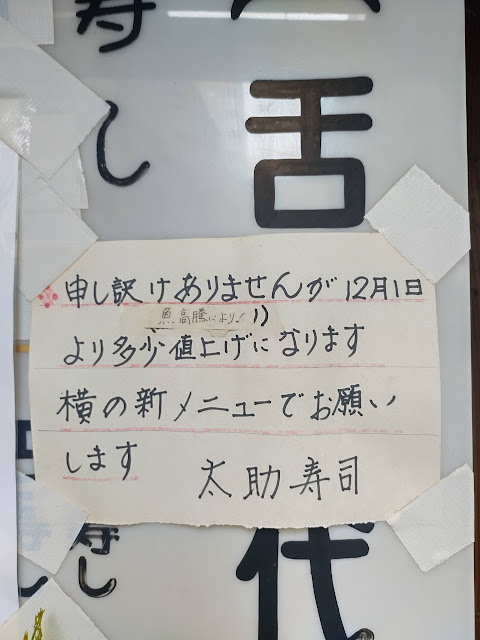 寿し
舌
※申し訳けありませんが12月1日
魚高騰により!
より多少値上げになります
横の新メニューでお願い
します
太助寿司
寿し
代